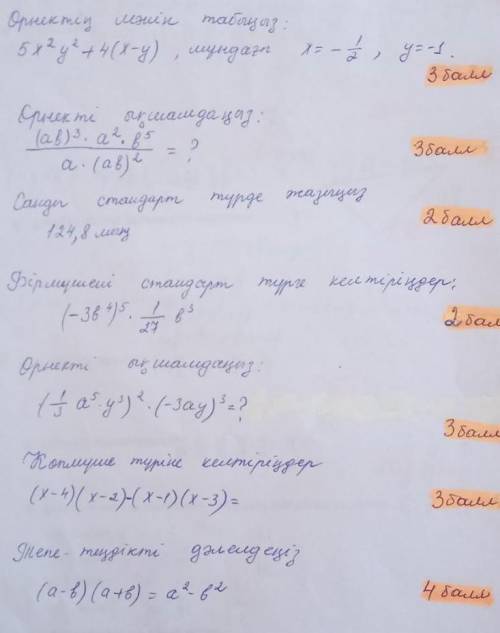 Өрнектің мәнін табыңыз:
5x²y²+4(x-y), мұндағы x = -1/2, y=-1.
3 балл
Өрнекті ықшамдаңыз:
(ab)³ · a² · b⁵ / a · (ab)² = ?
3 балл
Санды стандарт түрде жазыңыз
2 балл
124,8 мың
Бірмүшені стандарт түрге келтіріңдер:
(-3b⁴)⁵ · 1/27 b³
2 бал
Өрнекті ықшамдаңыз:
(1/3 a⁵·y³)² · (-3ay)³=?
3 бал
Көпмүше түріне келтіріңдер
(x-4)(x-2)-(x-1)(x-3)=
3 балл
Тепе-теңдікті дәлелдеңіз
(a-b)(a+b) = a²-b²
4 балл